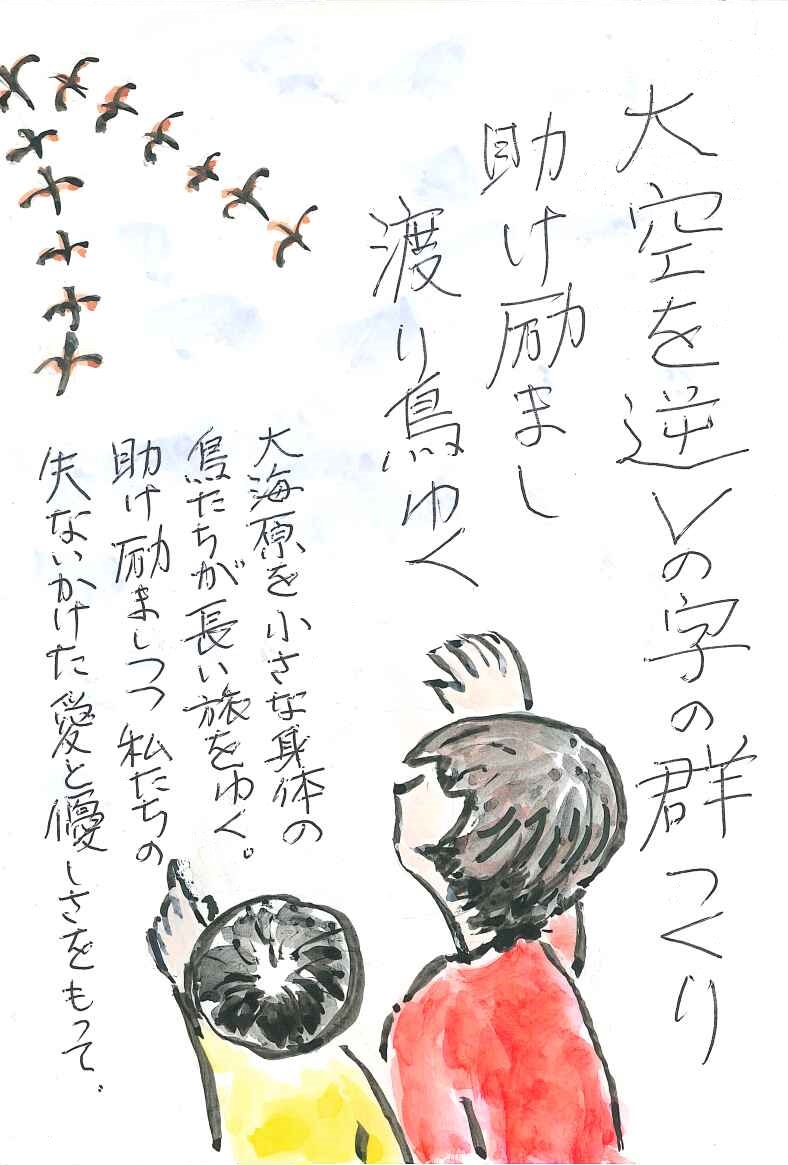 大空を逆Vの字の群つくり
助け励まし
渡り鳥ゆく
大海原を小さな身体の
鳥たちが長い旅をゆく。
助け励ましつつ私たちの
失ないかけた愛と優しさをもって。